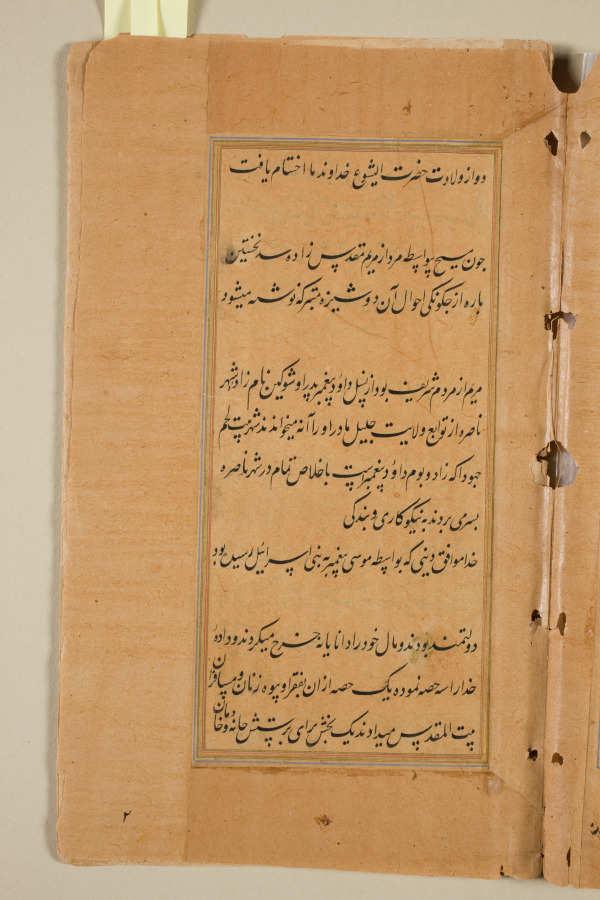 دو از ولادت حضرت الیشوع خداوند ما اختتام یافت
چون مسیح بواسطه مرد از مریم مقدس زاده سد نخستین
باره از چکونکی احوال آن دوشیزه متبرکه نوشته میشود
مریم از مردم شریف بود از نسل داود پیغمبر پدر او شوکین نام زاد شهر
ناصره از توابع ولایت جلیل مادر او را آنه میخواندند شهر بیت لحم
جهودا که زاد و بوم داود پیغمبر است باخلاص تمام در شهر ناصره
بسر می بردند به نیکوکاری و بندکی
خدا موافق دینی که بواسطه موسی پیغمبر به بنی اسرائیل رسیده بود
دولتمند بودند و مال خود را دانایانه خرج میکردند و دادهٔ
خدا را سه حصه نموده یک حصه ازان بفقرا و بیوه زنان و مسافران
بیت المقدس میدادند یک بخش برای پرستش خانه و خادمان
۲